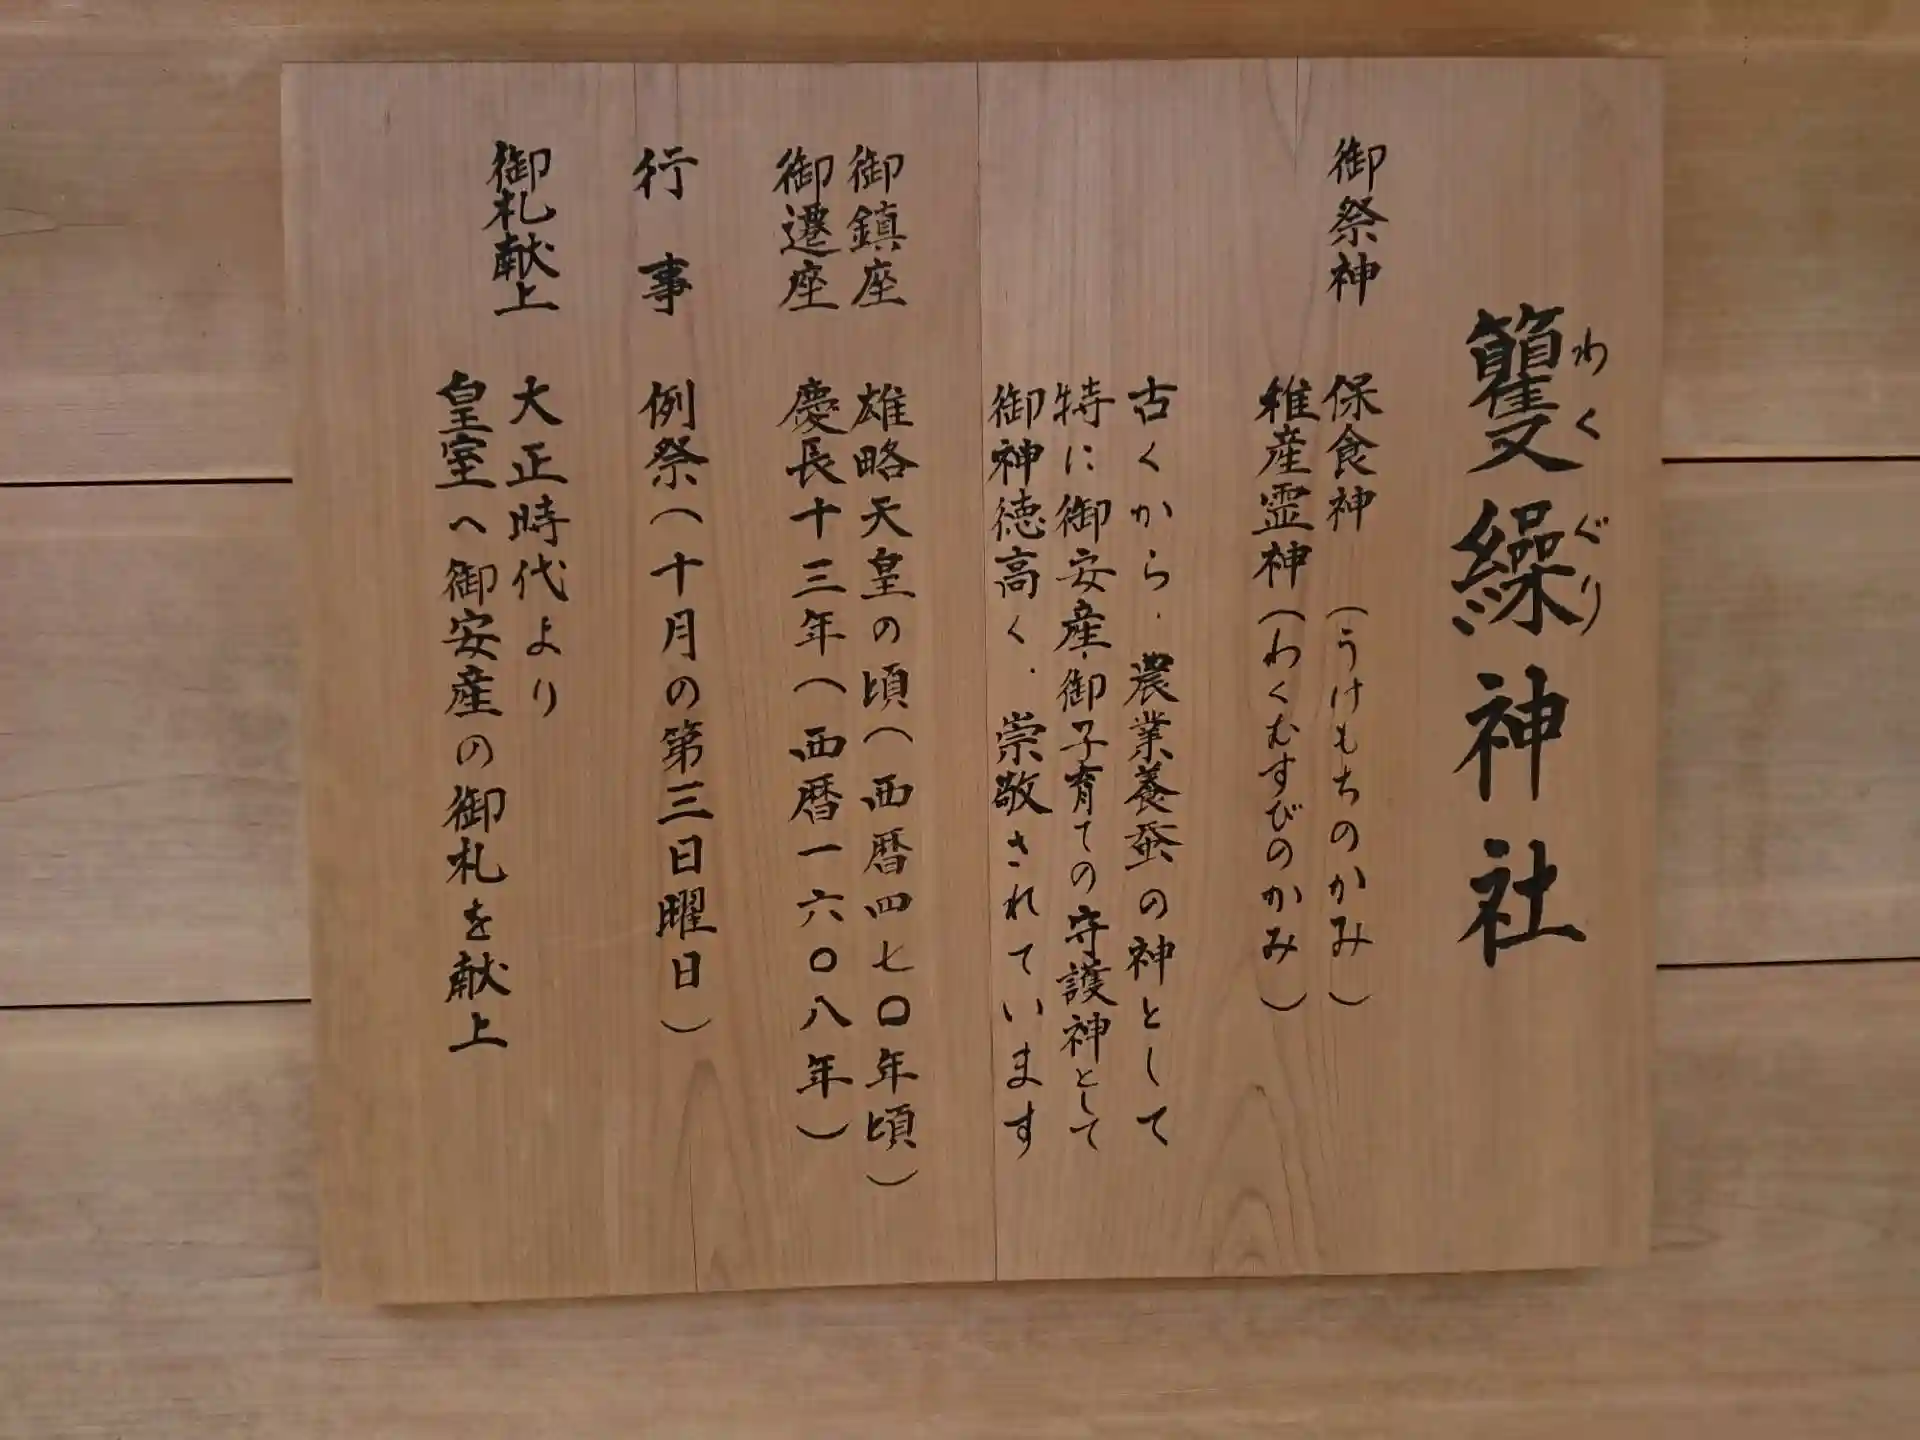 籰繰神社
わくぐり
御祭神 保食神 (うけもちのかみ)
稚産霊神(わくむすびのかみ)
古くから、農業養蚕の神として
特に御安産、御子育ての守護神として
御神徳高く、崇敬されています
御鎮座 雄略天皇の頃(西暦四七〇年頃)
御遷座 慶長十三年(西暦一六〇八年)
行事 例祭(十月の第三日曜日)
御札献上 大正時代より
皇室へ御安産の御札を献上